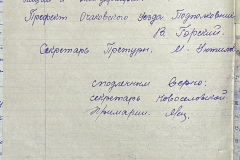 Префект Очаковского Уезда Подполковник
В. Горский.
Секретарь Претуры. М.
сподлинным верно:
секретарь Новоселовской
Примарии.